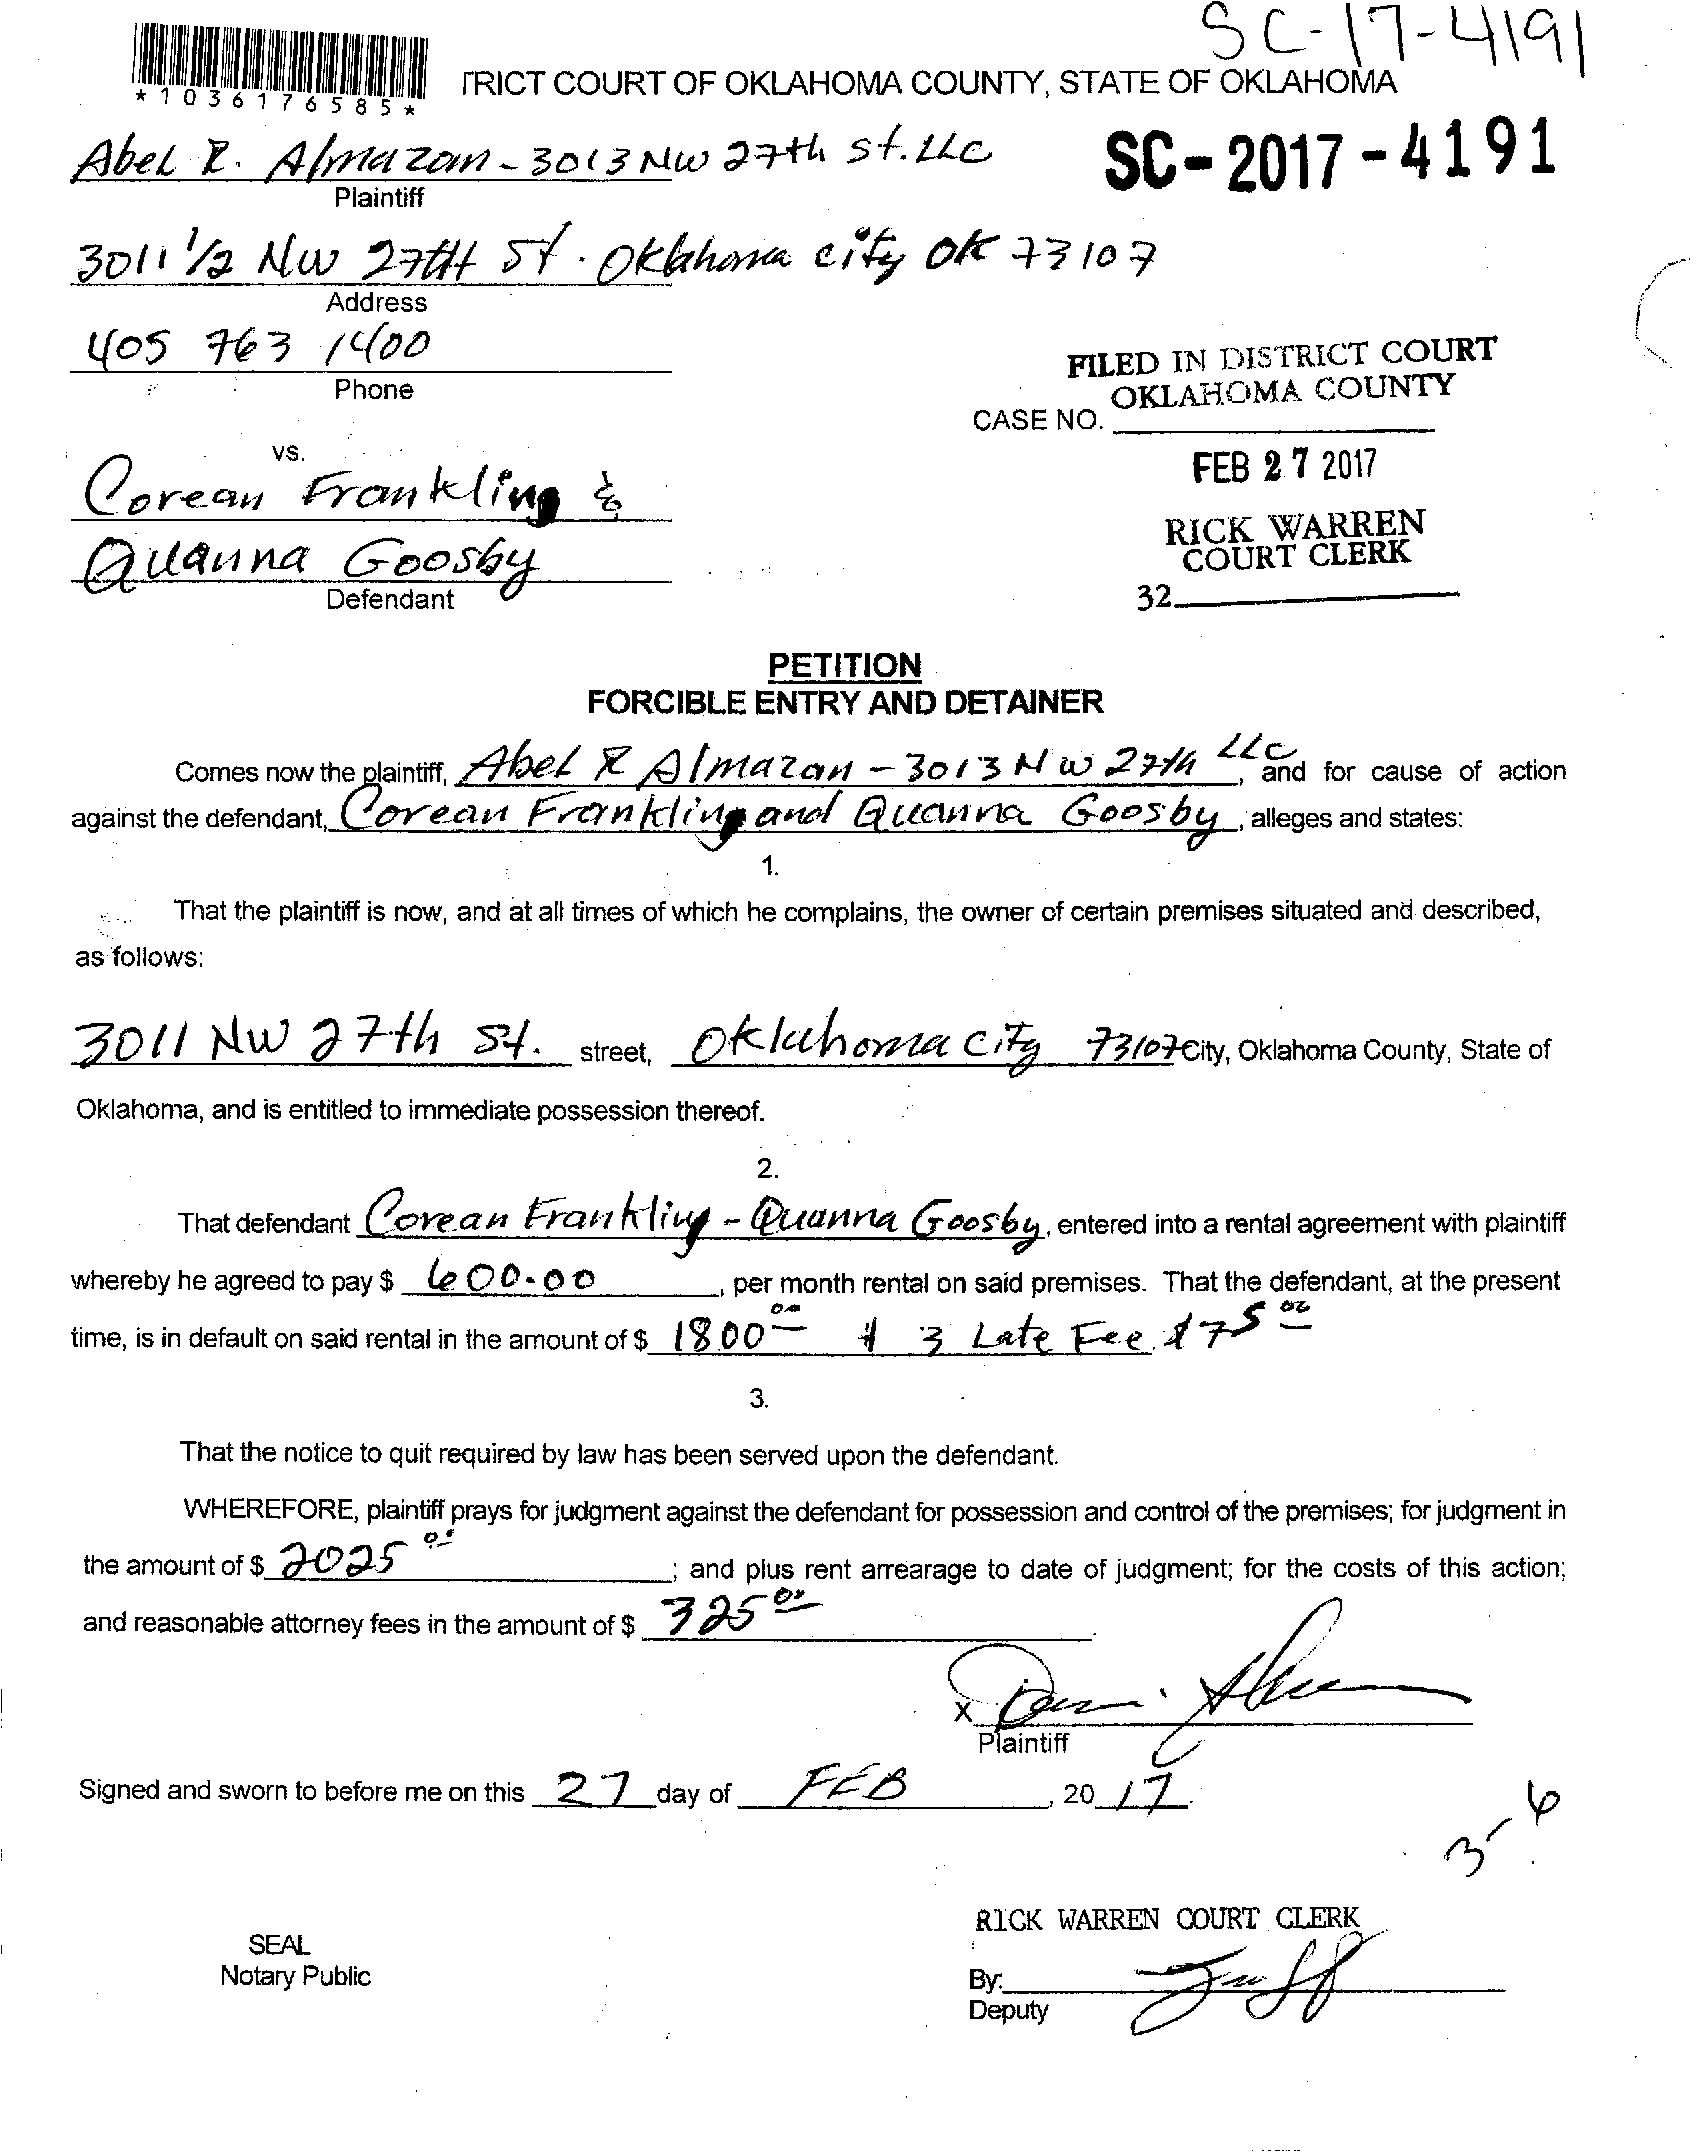 SC-17-4191
*1036176585*
TRICT COURT OF OKLAHOMA COUNTY, STATE OF OKLAHOMA
Abel R. Almazan - 3013 NW 27th St. LLC
SC-2017-4191
Plaintiff
3011 1/2 NW 27TH St. Oklahoma city OK 73107
Address
405 763 1400
Phone
FILED IN DISTRICT COURT
OKLAHOMA COUNTY
CASE NO.
vs.
FEB 27 2017
Corean Frankling &
RICK WARREN
COURT CLERK
Quanna Goosby
32
Defendant
PETITION
FORCIBLE ENTRY AND DETAINER
Comes now the plaintiff, Abel R Almazan - 3013 NW 27th LLC, and for cause of action
against the defendant, Corean Frankling and Quanna Goosby, alleges and states:
1.
That the plaintiff is now, and at all times of which he complains, the owner of certain premises situated and described,
as follows:
3011 NW 27th St. street, Oklahoma City 73107 City, Oklahoma County, State of
Oklahoma, and is entitled to immediate possession thereof.
2.
That defendant Corean Frankling - Quanna Goosby, entered into a rental agreement with plaintiff
whereby he agreed to pay $ 600.00, per month rental on said premises. That the defendant, at the present
time, is in default on said rental in the amount of $ 1800 00 & 3 Late Fee $75 00
3.
That the notice to quit required by law has been served upon the defendant.
WHEREFORE, plaintiff prays for judgment against the defendant for possession and control of the premises; for judgment in
the amount of $ 2025 00; and plus rent arrearage to date of judgment; for the costs of this action;
and reasonable attorney fees in the amount of $ 325 00
X
Plaintiff
Signed and sworn to before me on this 27 day of FEB, 20 17.
3-6
RICK WARREN COURT CLERK
SEAL
Notary Public
By:
Deputy